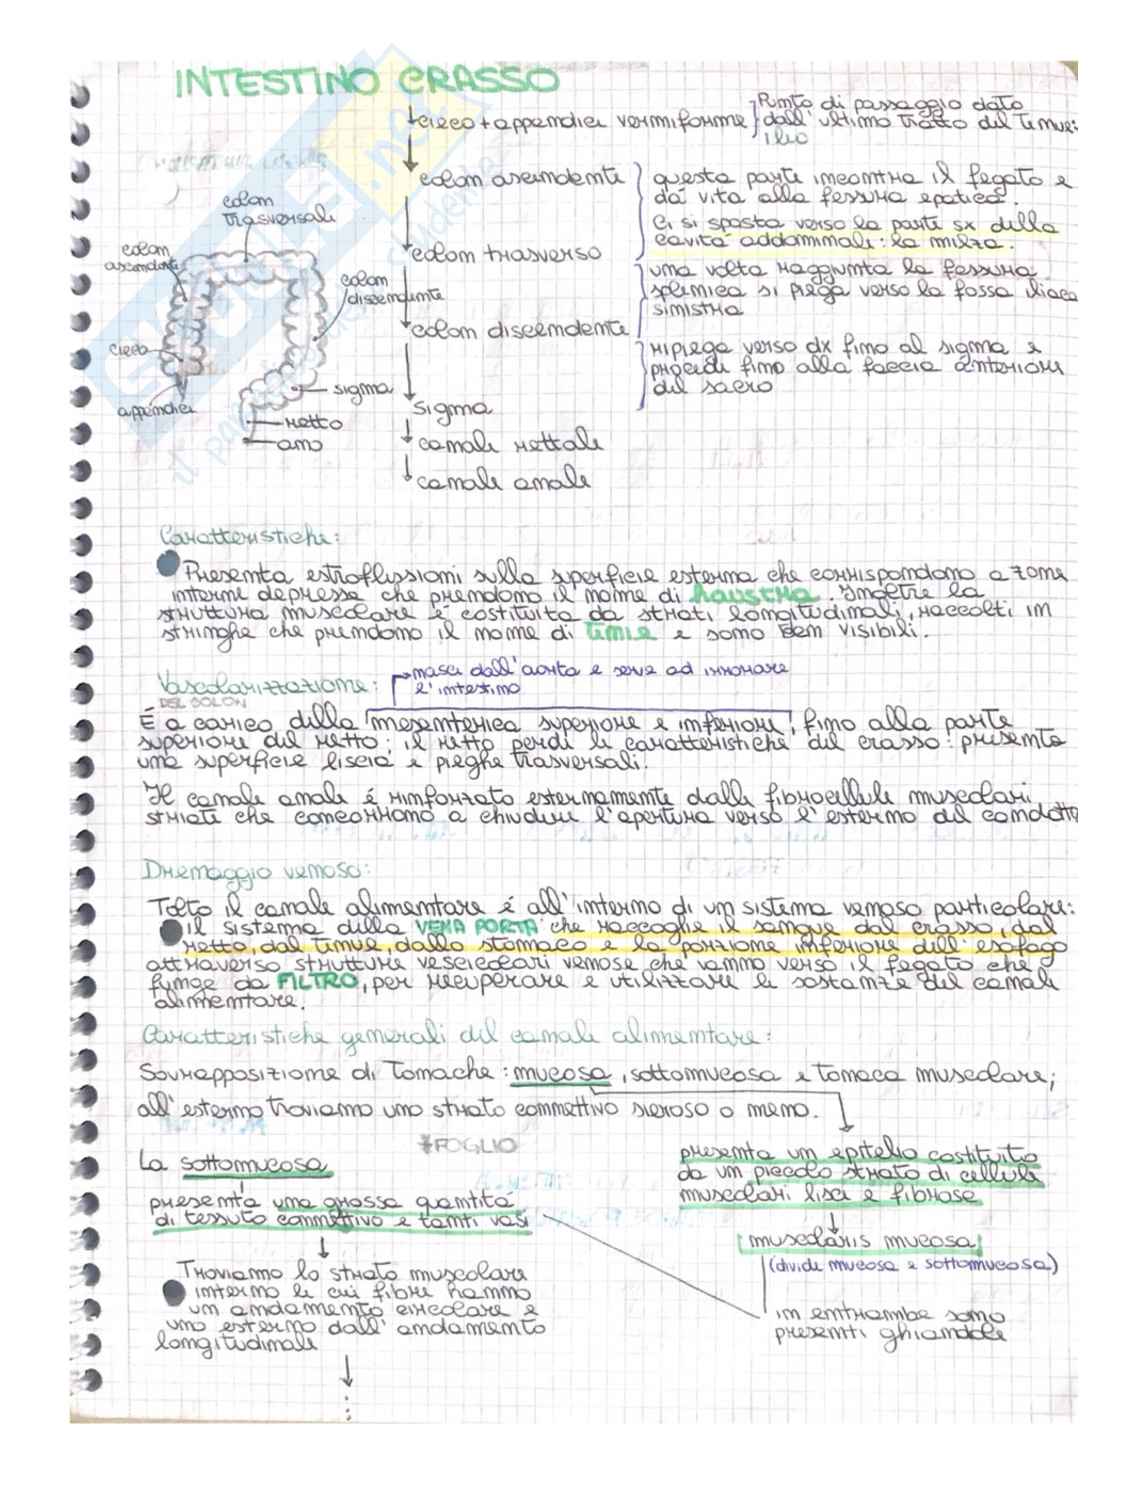 INTESTINO CRASSO
cieco + appendice vermiforme
Punto di passaggio dato
dall'ultimo tratto del tenue:
ileo
colon ascendente
questa parte incontra il fegato e
dà vita alla fessura epatica.
Ci si sposta verso la parte sx della
cavità addominale: la milza.
colon trasverso
una volta raggiunta la fessura
splenica si piega verso la fossa iliaca
sinistra
colon discendente
ripiega verso dx fino al sigma e
procede fino alla faccia anteriore
del sacro
sigma
canale rettale
canale anale
colon
trasversale
colon
ascendente
colon
discendente
cieco
appendice
sigma
retto
ano
Caratteristiche:
Presenta estroflessioni sulla superficie esterna che corrispondono a zone
interne depresse che prendono il nome di haustra. Inoltre la
struttura muscolare è costituita da strati longitudinali, raccolti in
stringhe che prendono il nome di tenie e sono ben visibili.
nasce dall'aorta e serve ad irrorare
l'intestino
Vascolarizzazione:
DEL COLON
È a carico della mesenterica superiore e inferiore, fino alla parte
superiore del retto; il retto perde le caratteristiche del crasso: presenta
una superficie liscia e pieghe trasversali.
Il canale anale è rinforzato esternamente dalle fibrocellule muscolari
striate che concorrono a chiudere l'apertura verso l'esterno del condotto
Drenaggio venoso:
Tolto il canale alimentare è all'interno di un sistema venoso particolare:
il sistema della VENA PORTA che raccoglie il sangue dal crasso, dal
retto, dal tenue, dallo stomaco e la porzione inferiore dell'esofago
attraverso strutture vescicolari venose che vanno verso il fegato che
funge da FILTRO, per recuperare e utilizzare le sostanze del canale
alimentare.
Caratteristiche generali del canale alimentare:
Sovrapposizione di tonache: mucosa, sottomucosa e tonaca muscolare;
all'esterno troviamo uno strato connettivo sieroso o meno.
*FOGLIO
La sottomucosa
presenta un epitelio costituito
da un piccolo strato di cellule
muscolari lisce e fibrose
presenta una grossa quantità
di tessuto connettivo e tanti vasi
muscolaris mucosa
(divide mucosa e sottomucosa)
Troviamo lo strato muscolare
interno le cui fibre hanno
un andamento circolare e
uno esterno dall'andamento
longitudinale
in entrambe sono
presenti ghiandole